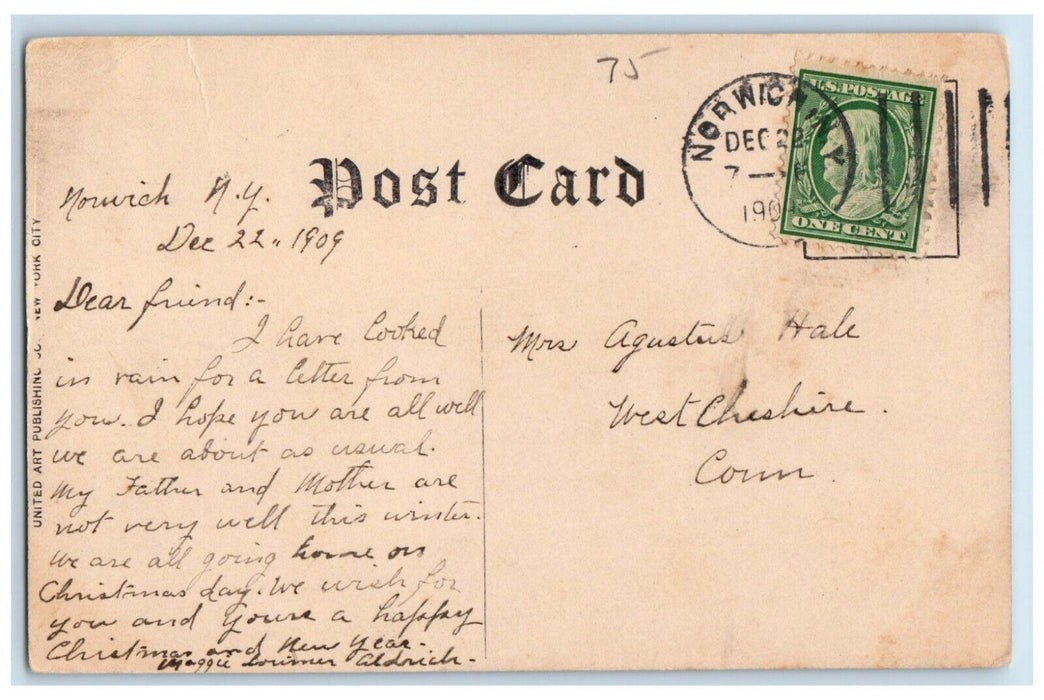 75
NORWICH, N.Y.
DEC 22
7 —
190
U.S. POSTAGE
ONE CENT
Post Card
Norwich N.Y.
Dec 22" 1909
Dear friend:-
I have looked
in vain for a letter from
you. I hope you are all well
we are about as usual.
My Father and Mother are
not very well this winter.
We are all going home on
Christmas day. We wish for
you and yours a happy
Christmas and New Year.
Maggie Lorimer Aldrich-
Mrs Agustus Hale
West Cheshire.
Conn.
UNITED ART PUBLISHING CO. NEW YORK CITY